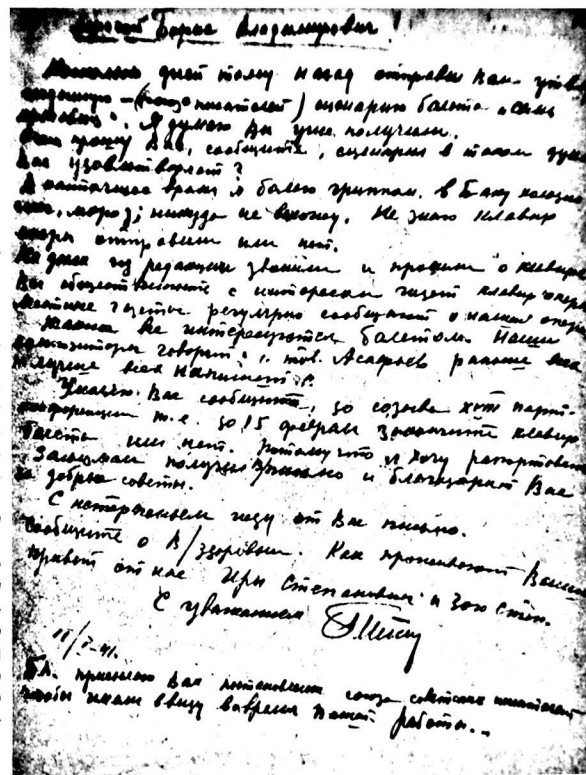 Дорогой Борис Владимирович!
Несколько дней тому назад отправил Вам утвер
жденную – (союзо писателей) сценарию балета „Семь
красавиц". Я думаю Вы уже получили.
Очень прошу Вас, сообщите, сценария в таком духе
Вас удовлетворяет?
В настоящее время я болею гриппом. В Баку
мороз; никуда не выхожу. Не знаю клавир
оперы отправили или нет.
На днях из редакции звонили и просили о клавире
Вся общественность с интересом клавир оперы
Местные газеты регулярно сообщают о нашей опере
Также все интересуются балетом. Наши
композиторы говорят: „тов. Асафьев раньше всех
и лучше всех напишет".
Умоляю Вас сообщите, до созыва XVIII парт-
конференции т.е. до 15 февраля закончите клавир
балета или нет. Потому что я хочу рапортовать
получил письмо и благодарит Вас
за добрые советы.
С нетерпением жду от Вас письмо.
Сообщите о В/здоровьи. Как проживают Ваши
привет от нас Иры Степановны и Зои Степ.
С уважением
11/I-41.
P.S. присылаю Вам постановление союза советских писателей
чтобы имели ввиду вовремя Вашей работы...